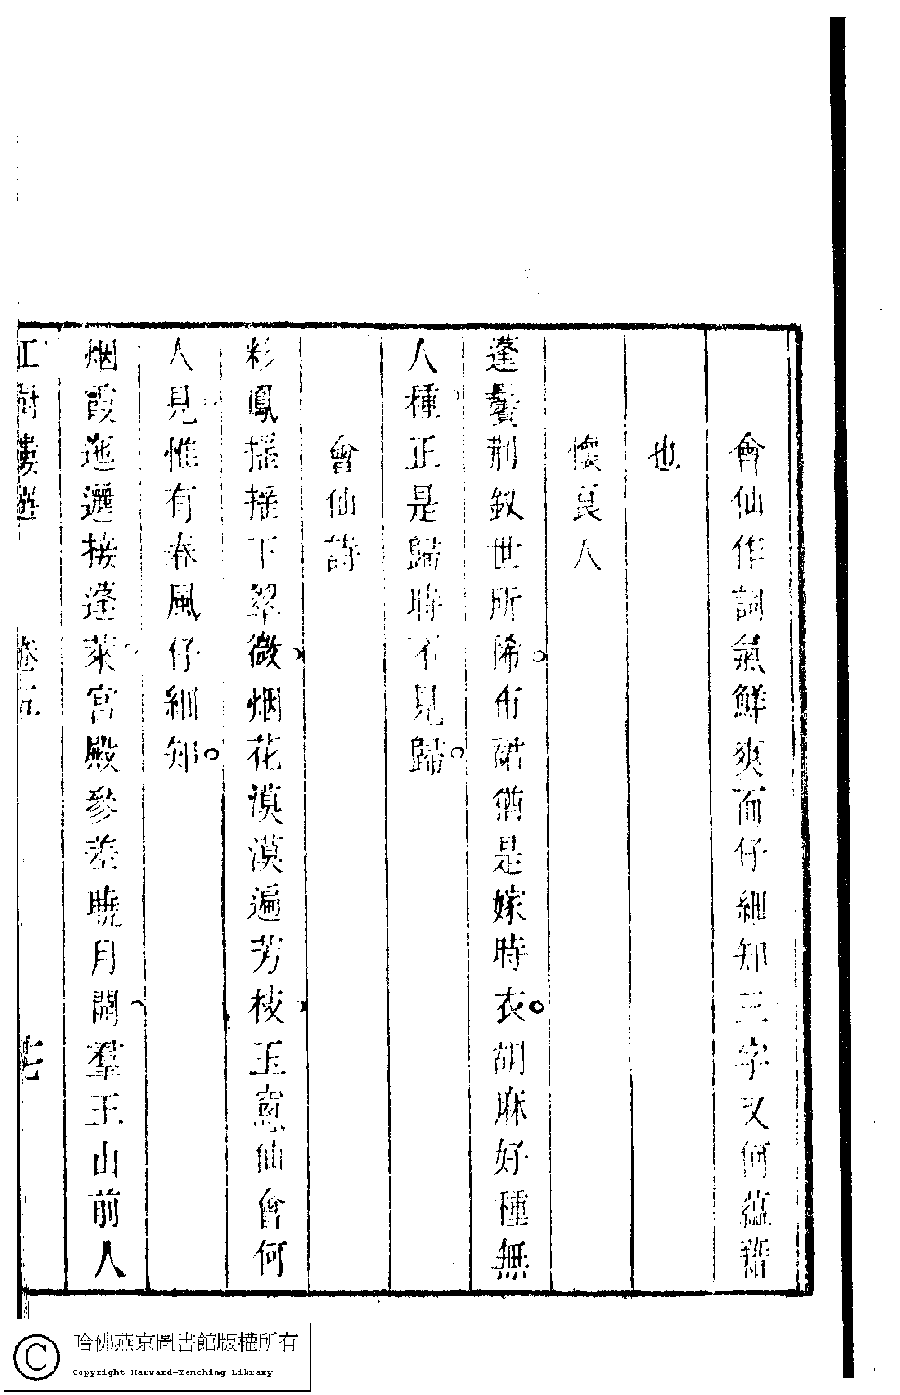 會仙作詞氣鮮爽而仔細知三字又何蘊藉
也
懷良人
蓬鬢荆釵世所稀布裙猶是嫁時衣胡麻好種無
人種正是歸時不見歸
會仙詩
彩鳳摇摇下翠微烟花漠漠遍芳枝玉窻仙會何
人見惟有春風仔細知
烟霞迤邐接蓬萊宮殿參差曉月開羣玉山前人
紅樹樓選 卷五 七
哈佛燕京圖書館版權所有
Copyright Harvard-Yenching Library